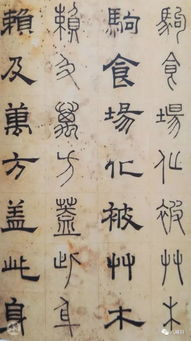 駒食場化被艸木
駒食場化被艸木
賴及萬方蓋此身
賴及萬方盖此身